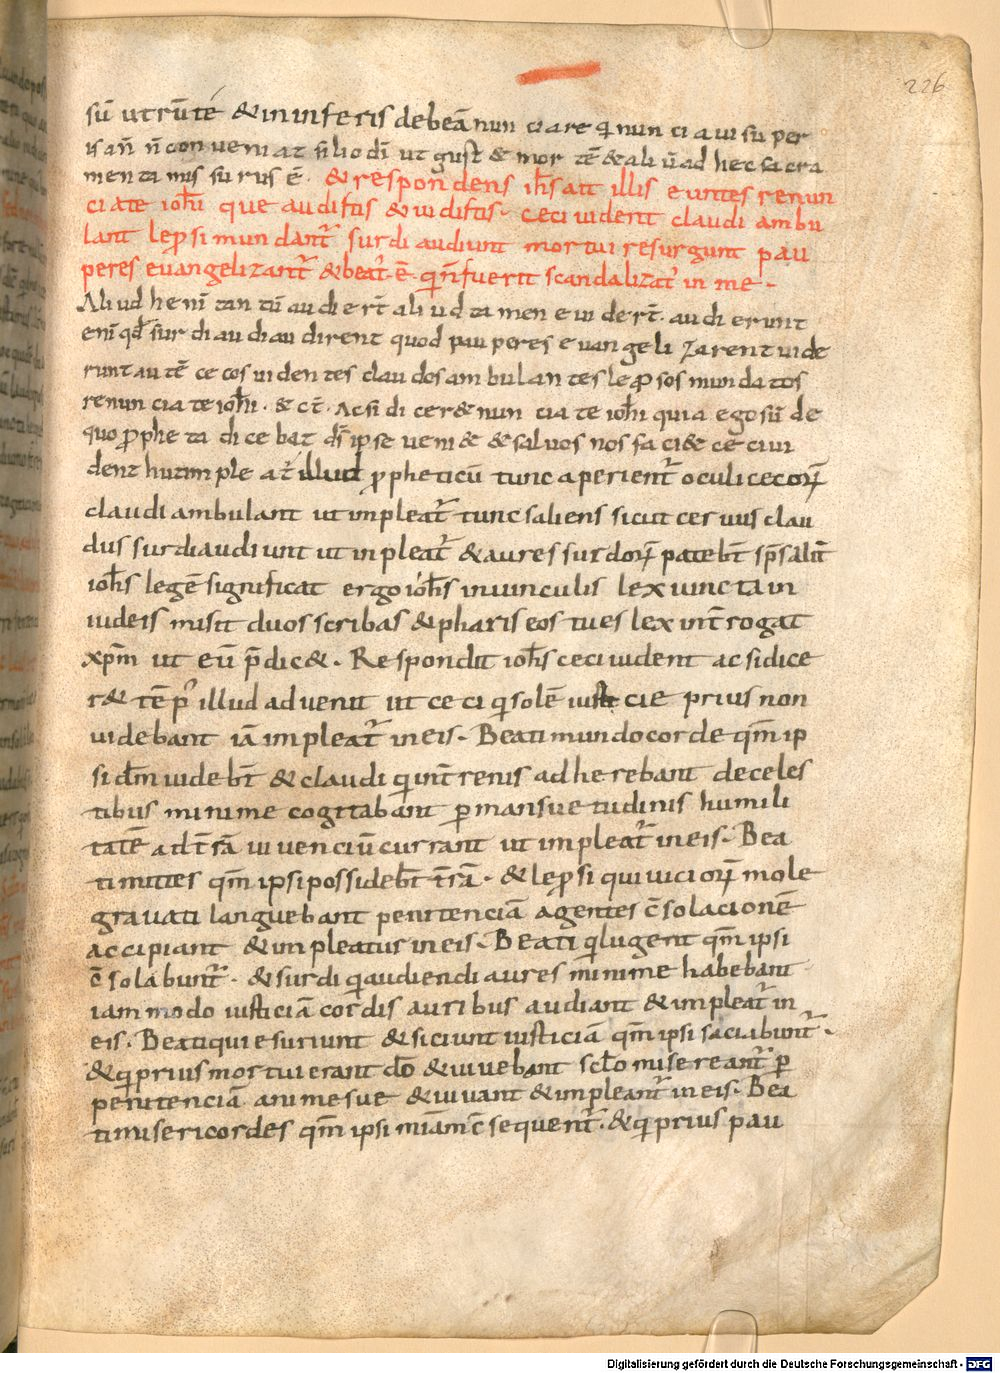 226
sū utrū te & in inferis debeā nunciare qi nunciavi super
is añ ñ conveniat filio dī ut gust& mortē & aliū ad hec sacra
menta missurus ē. & respondens ih̄s ait illis euntes renun
ciate ioh̄i que audistis & vidistis. ceci vident claudi ambu
lant lep̄si mundant̄ surdi audiunt mortui resurgunt pau
peres evangelizant̄ & beat̄ ē qi ñ fuerit scandalizat̄ in me.
Aliud audiert̄ aliud tamen vidert̄. audierunt
eni qđ surdi audirent quod pauperes evangelizarent vide
runt autē cecos videntes claudos ambulantes lep̄sos mundatos
renunciate ioh̄i. & ct̄. Acsi dicer& nunciate ioh̄i quia ego sū de
quo p̄pheta dicebat d̄s ipse veni& & salvos nos faci& ceci vi
dent ut impleat̄ illud p̄pheticū tunc aperient̄ oculi cecor̄
claudi ambulant ut impleat̄ tunc saliens sicut cervus clau
dus surdi audiunt ut inpleat̄ & aures surdor̄ patebt̄
ioh̄s legē significat ergo ioh̄s in vinculis lex vincta in
iudeis misit duos scribas & phariseos tues lex int̄rogat
xp̄m ut eū p̄dic&. Respondit ioh̄s ceci vident ac si dice
r& tēp̄ illud advenit ut ceci qi solē iusticie prius non
videbant iā impleat̄ in eis. Beati mundo corde qm̄ ip
si dm̄ videbt̄ & claudi qi int̄renis adherebant de celes
tibus minime cogitabant p̄ mansuetudinis humili
tatē ad t̄rā viventiū currant ut impleat̄ in eis. Bea
ti mites qm̄ ipsi possidebt̄ t̄rā. & lep̄si qui vicior̄ mole
gravati languebant penitenciā agentes c̄solacionē
accipiant & impleatur in eis. Beati qi lugent qm̄ ipsi
c̄solabunt̄. & surdi qi audiendi aures minime habebant
iam modo iusticiā cordis auribus audiant & impleat̄ in
eis. Beati qui esuriunt & siciunt iusticiā qm̄ ipsi saciabunt̄.
& qi prius mortui erant dō & vivebant scl̄o misereant̄ p̄
penitenciā anime sue & vivant & impleant̄ in eis. Bea
ti misericordes qm̄ ipsi miām c̄sequent̄. & qi prius pau
Digitalisierung gefördert durch die Deutsche Forschungsgemeinschaft - DFG